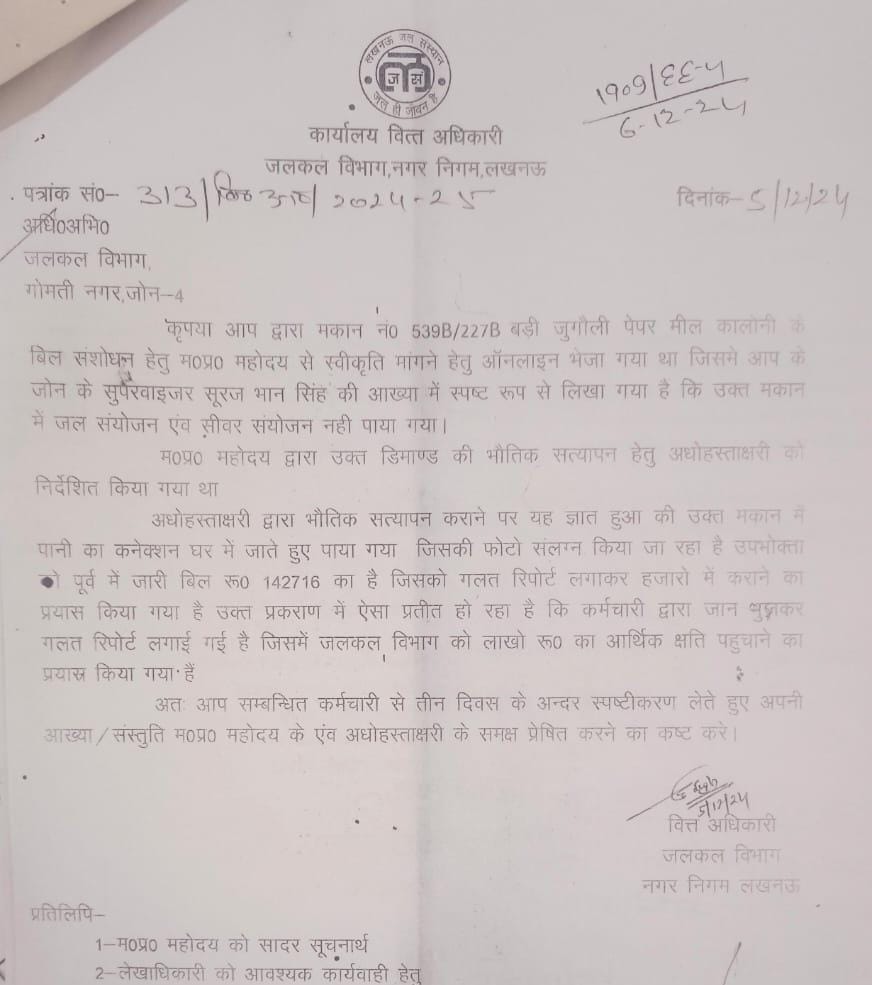 लखनऊ जल संस्थान
ज सं
जल ही जीवन है
1909/ईई-5
6-12-24
कार्यालय वित्त अधिकारी
जलकल विभाग,नगर निगम,लखनऊ
पत्रांक सं0- 313/वि0 अधि/2024-25 दिनांक-5/12/24
अधि0अभि0
जलकल विभाग,
गोमती नगर,जोन-4
कृपया आप द्वारा मकान नं0 539B/227B बड़ी जुगौली पेपर मील कालोनी के
बिल संशोधन हेतु म0प्र0 महोदय से स्वीकृति मांगने हेतु ऑनलाइन भेजा गया था जिसमे आप के
जोन के सुपरवाइजर सूरज भान सिंह की आख्या में स्पष्ट रूप से लिखा गया है कि उक्त मकान
में जल संयोजन एंव सीवर संयोजन नही पाया गया।
म0प्र0 महोदय द्वारा उक्त डिमाण्ड की भौतिक सत्यापन हेतु अधोहस्ताक्षरी को
निर्देशित किया गया था
अधोहस्ताक्षरी द्वारा भौतिक सत्यापन कराने पर यह ज्ञात हुआ की उक्त मकान में
पानी का कनेक्शन घर में जाते हुए पाया गया जिसकी फोटो संलग्न किया जा रहा है उपभोक्ता
को पूर्व में जारी बिल रू0 142716 का है जिसको गलत रिपोर्ट लगाकर हजारो में कराने का
प्रयास किया गया है उक्त प्रकराण में ऐसा प्रतीत हो रहा है कि कर्मचारी द्वारा जान बुझकर
गलत रिपोर्ट लगाई गई है जिसमें जलकल विभाग को लाखो रू0 का आर्थिक क्षति पहुचाने का
प्रयास किया गया हैं
अतः आप सम्बन्धित कर्मचारी से तीन दिवस के अन्दर स्पष्टीकरण लेते हुए अपनी
आख्या/संस्तुति म0प्र0 महोदय के एंव अधोहस्ताक्षरी के समक्ष प्रेषित करने का कष्ट करे।
5/12/24
वित्त अधिकारी
जलकल विभाग
नगर निगम लखनऊ
प्रतिलिपि-
1-म0प्र0 महोदय को सादर सूचनार्थ
2-लेखाधिकारी को आवश्यक कार्यवाही हेतु